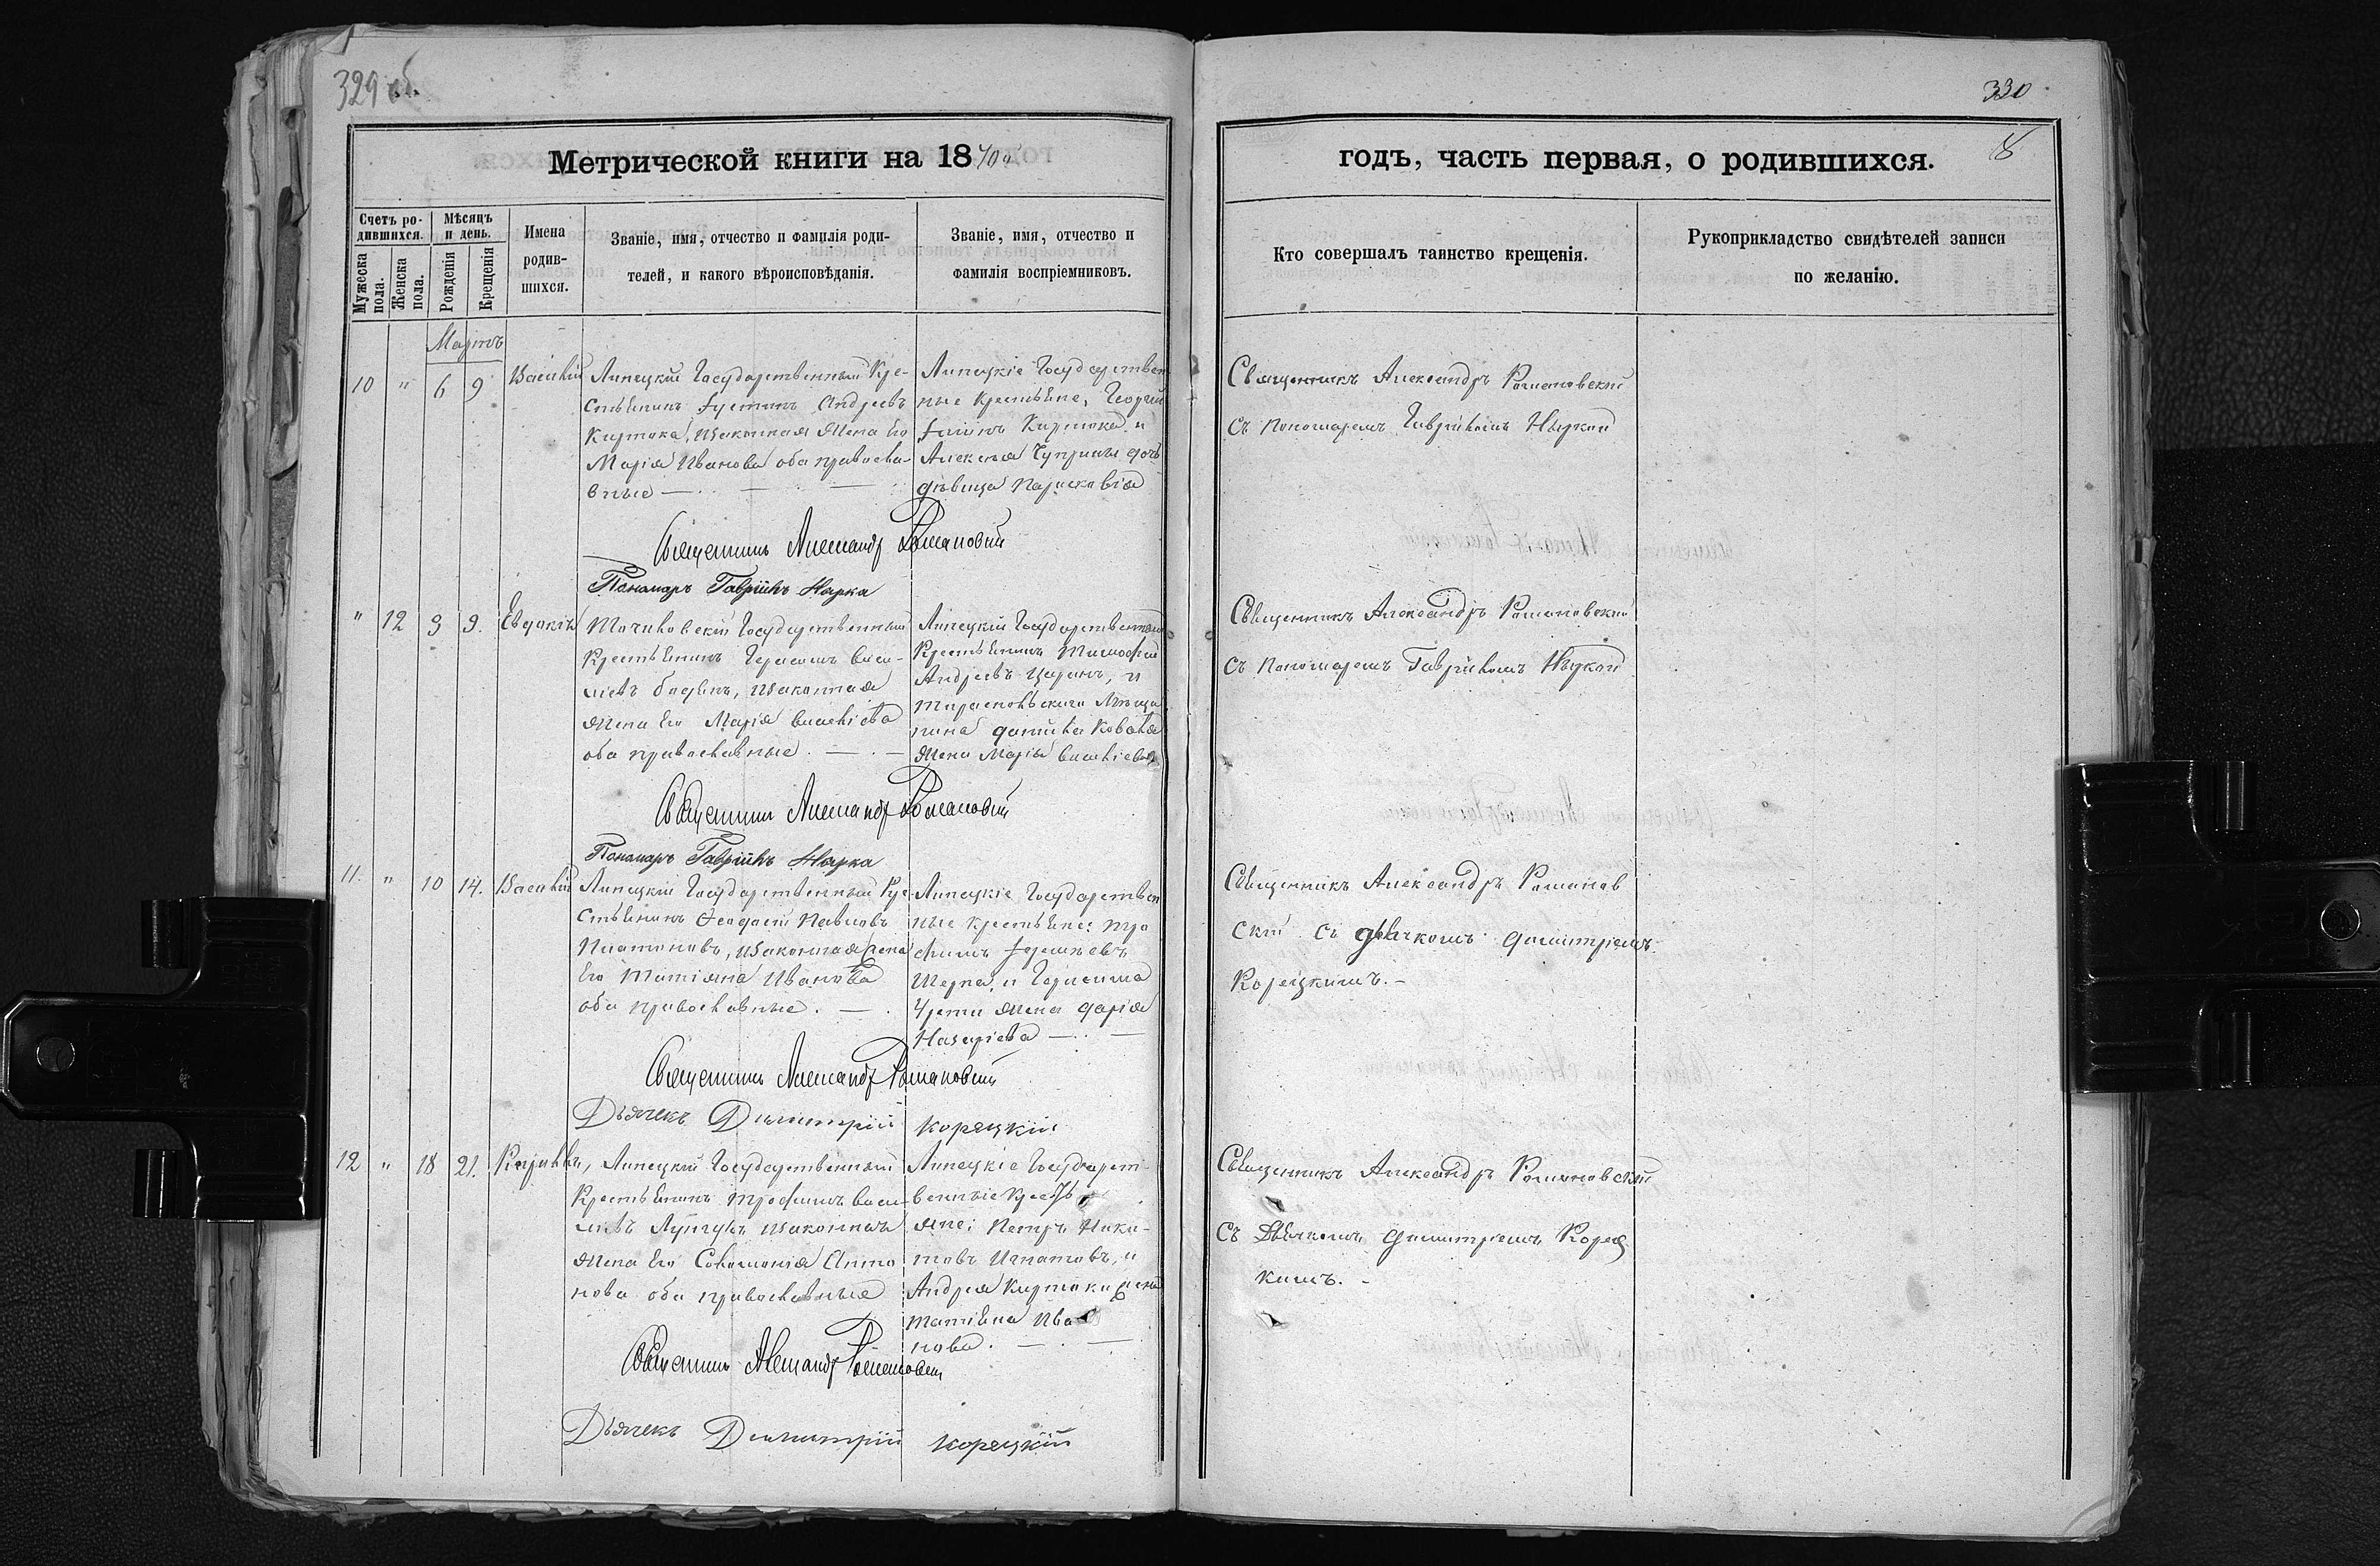 329 об.
330
8
Метрической книги на 1870й
годъ, часть первая, о родившихся.
Счетъ родившихся.
Мужеска пола.
Женска пола.
Мѣсяцъ и день.
Рожденія
Крещенія
Имена родив-
шихся.
Званіе, имя, отчество и фамилія роди-
телей, и какого вѣроисповѣданія.
Званіе, имя, отчество и
фамилія воспріемниковъ.
Кто совершалъ таинство крещенія.
Рукоприкладство свидѣтелей записи
по желанію.
Мартъ
10 " 6 9 Василій
Липецкій Государственный Кре-
стьянинъ Іустинъ Андреевъ
Киртока, законная жена Его
Марія Иванова оба правосла-
вные — . — . —
Липецкіе Государствен
ные Крестьяне, Георгій
Киртока и
Алексѣя Чуприны дочь
дѣвица Парасковія
Священникъ Александръ Романовскій
съ Пономаремъ Гавріиломъ Нъркой
Священникъ Александръ Романовскій
Пономарь Гавріилъ Нярка
" 12 9 9. Евдокія
Точиловскій Государственный
Крестьянинъ Герасимъ Васи-
ліевъ законная
жена Его Марія Василіева
оба православные . — . —
Липецкій Государственный
Крестьянинъ Тимофей
Андреевъ Царанъ, и
Тираспольскаго Мѣща
нина Данила Коваля
жена Марія Василіева
Священникъ Александръ Романовскій
съ Пономаремъ Гавріиломъ Нъркой
Священникъ Александръ Романовскій
Пономарь Гавріилъ Нярка
11. " 10 14. Василій
Липецкій Государственный Кре
стьянинъ Феодосій Павловъ
Платоновъ, законная жена
Его Татіяна Иванова
оба православные . — .
Липецкіе Государствен
ные крестьяне: Тро
фимъ Іереміевъ
и Герасима
жена Дарія
Назаріева — . —
Священникъ Александръ Романов
скій съ дьячкомъ Димитріемъ
Корецкимъ. –
Священникъ Александръ Романовскій
Дьячекъ Димитрій Корецкій
12 " 18 21. Кириллъ,
Липецкій Государственный
Крестьянинъ Трофимъ Васи-
ліевъ Лупулъ законная
жена Его Соломонія Анто
нова оба православные
Липецкіе Государст-
венные Кресть
яне: Петръ Ники-
товъ Игнатовъ, и
Андрея Киртоки жена
Татіяна Ива
нова. — . —
Священникъ Александръ Романовскій
съ Дьячкомъ Димитріемъ Корец
кимъ. –
Священникъ Александръ Романовскій
Дьячекъ Димитрій Корецкій